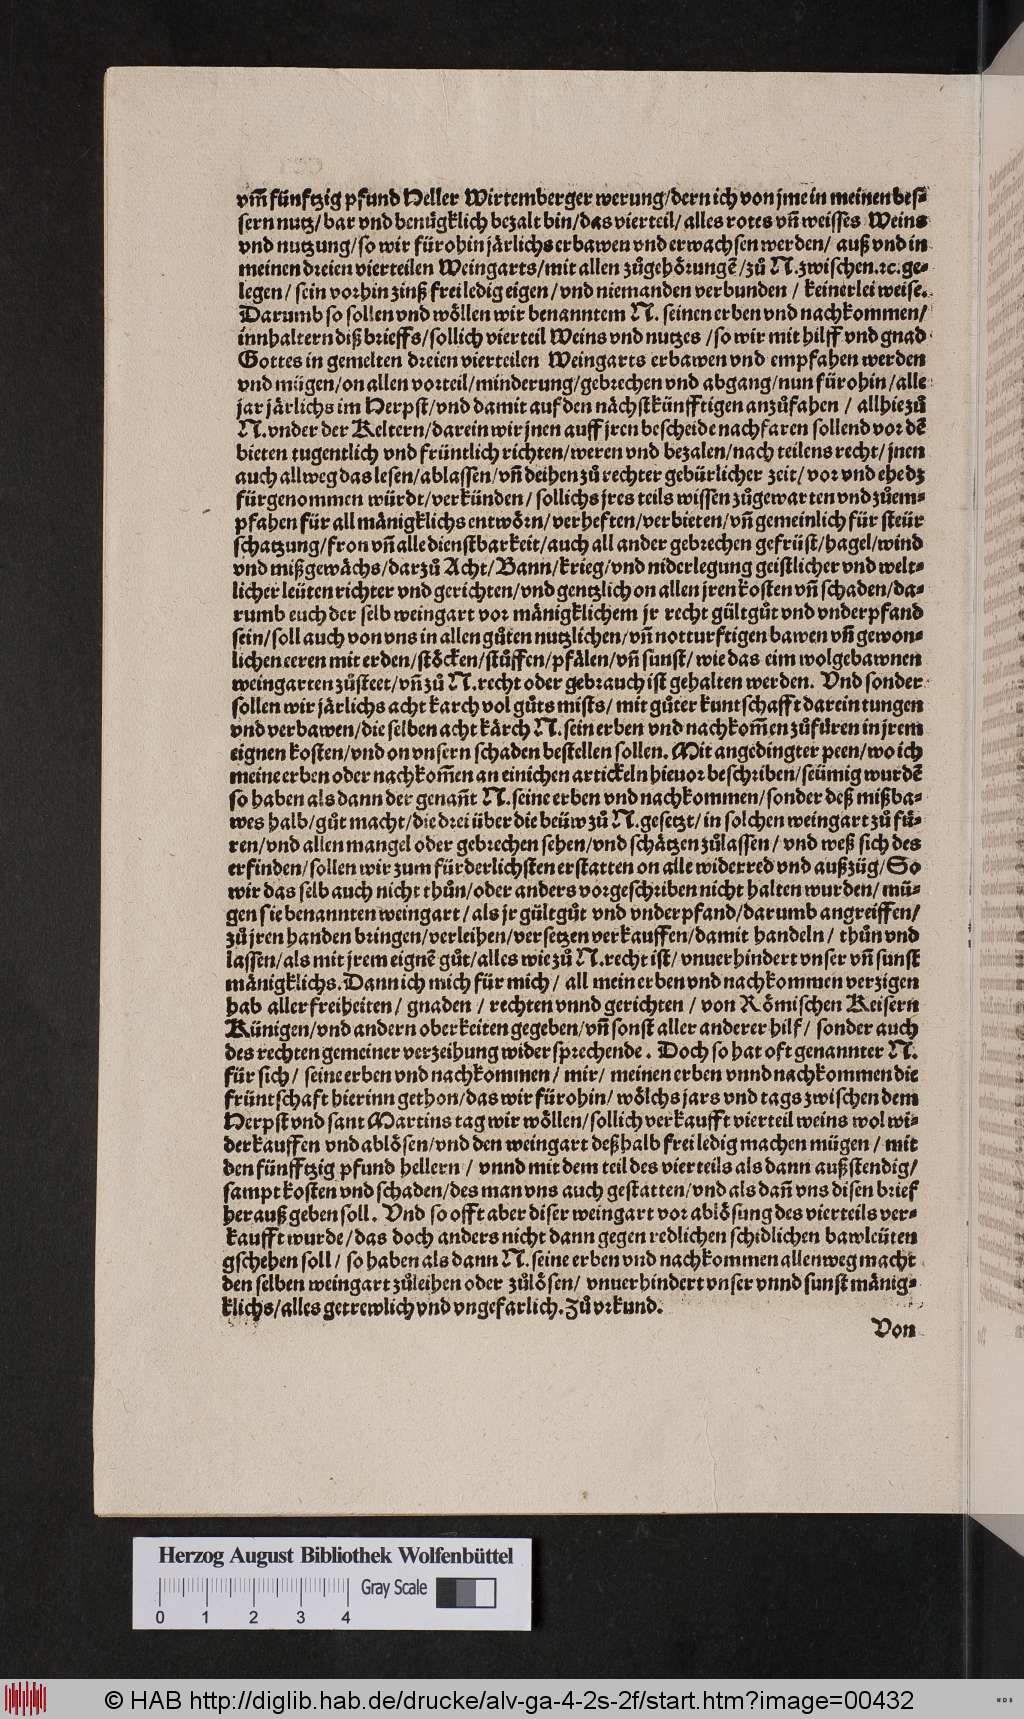 vm̃ fünftzig pfund Heller Wirtemberger werung/dern ich von jme in meinen bes-
sern nutz/bar vnd benuͤgklich bezalt bin/das vierteil/alles rotes vñ weisses Weins
vnd nutzung/so wir fürohin jaͤrlichs erbawen vnd erwachsen werden/ auß vnd in
meinen dreien vierteilen Weingarts/mit allen zuͦgehoͤrungẽ/zuͦ N.zwischen.ꝛc.ge-
legen/ sein vorhin zinß frei ledig eigen/ vnd niemanden verbunden / keinerlei weise.
Darumb so sollen vnd woͤllen wir benanntem N. seinen erben vnd nachkommen/
innhaltern diß brieffs/sollich vierteil Weins vnd nutzes /so wir mit hilff vnd gnad
Gottes in gemelten dreien vierteilen Weingarts erbawen vnd empfahen werden
vnd mügen/on allen vorteil/minderung/gebrechen vnd abgang/nun fürohin/alle
jar jaͤrlichs im Herpst/vnd damit auf den naͤchstkünfftigen anzuͦfahen / allhie zuͦ
N.vnder der Keltern/darein wir jnen auff jren bescheide nachfaren sollend vor dẽ
bieten tugentlich vnd früntlich richten/weren vnd bezalen/nach teilens recht/jnen
auch allweg das lesen/ablassen/vñ deihen zuͦ rechter gebürlicher zeit/ vor vnd ehe dz
fürgenommen würdt/verkünden/ sollichs jres teils wissen zuͦgewarten vnd zuͦem-
pfahen für all maͤnigklichs entwoͤrn/verheften/verbieten/vñ gemeinlich für steür
schatzung/fron vñ alle dienstbarkeit/auch all ander gebrechen gefrüst/hagel/wind
vnd mißgewaͤchs/darzuͦ Acht/Bann/krieg/vnd niderlegung geistlicher vnd welt-
licher leüten richter vnd gerichten/vnd gentzlich on allen jren kosten vñ schaden/da-
rumb euch der selb weingart vor maͤnigklichem jr recht gültguͦt vnd vnderpfand
sein/soll auch von vns in allen guͦten nutzlichen/vñ notturftigen bawen vñ gewon-
lichen eeren mit erden/stoͤcken/stuͦffen/pfaͤlen/vñ sunst/wie das eim wolgebawnen
weingarten zuͦsteet/vñ zuͦ N.recht oder gebrauch ist gehalten werden. Vnd sonder
sollen wir jaͤrlichs acht karch vol guͦts mists/ mit guͦter kuntschafft darein tungen
vnd verbawen/die selben acht kaͤrch N.sein erben vnd nachkom̃en zuͦfüren in jrem
eignen kosten/vnd on vnsern schaden bestellen sollen. Mit angedingter peen/wo ich
meine erben oder nachkom̃en an einichen artickeln hieuor beschriben/seümig wurdẽ
so haben als dann der genañt N.seine erben vnd nachkommen/sonder deß mißba-
wes halb/guͦt macht/die drei über die beüw zuͦ N.gesetzt/in solchen weingart zuͦ fü-
ren/vnd allen mangel oder gebrechen sehen/vnd schaͤtzen zuͦlassen/ vnd weß sich des
erfinden/sollen wir zum fürderlichsten erstatten on alle widerred vnd außzüg/So
wir das selb auch nicht thuͦn/oder anders vorgeschriben nicht halten wurden/ mü-
gen sie benannten weingart/als jr gültguͦt vnd vnderpfand/darumb angreiffen/
zuͦ jren handen bringen/verleihen/versetzen verkauffen/damit handeln/ thuͦn vnd
lassen/als mit jrem eignẽ guͦt/alles wie zuͦ N.recht ist/ vnuerhindert vnser vñ sunst
maͤnigklichs.Dann ich mich für mich/ all mein erben vnd nachkommen verzigen
hab aller freiheiten/ gnaden / rechten vnnd gerichten / von Roͤmischen Keisern
Künigen/vnd andern oberkeiten gegeben/vñ sonst aller anderer hilf/ sonder auch
des rechten gemeiner verzeihung wider sprechende . Doch so hat oft genannter N.
für sich/ seine erben vnd nachkommen/ mir/ meinen erben vnnd nachkommen die
früntschaft hierinn gethon/das wir fürohin/ woͤlchs jars vnd tags zwischen dem
Herpst vnd sant Martins tag wir woͤllen/sollich verkaufft vierteil weins wol wi-
derkauffen vnd abloͤsen/vnd den weingart deßhalb frei ledig machen mügen / mit
den fünfftzig pfund hellern / vnnd mit dem teil des vierteils als dann außstendig/
sampt kosten vnd schaden/des man vns auch gestatten/vnd als dañ vns disen brief
herauß geben soll. Vnd so offt aber diser weingart vor abloͤsung des vierteils ver-
kaufft wurde/das doch anders nicht dann gegen redlichen schidlichen bawleüten
gschehen soll/ so haben als dann N.seine erben vnd nachkommen allenweg macht
den selben weingart zuͦleihen oder zuͦloͤsen/ vnuerhindert vnser vnnd sunst maͤnig-
klichs/alles getrewlich vnd vngefarlich.Zuͦ vrkund.
Von
Herzog August Bibliothek Wolfenbüttel
Gray Scale
0 1 2 3 4
© HAB http://diglib.hab.de/drucke/alv-ga-4-2s-2f/start.htm?image=00432